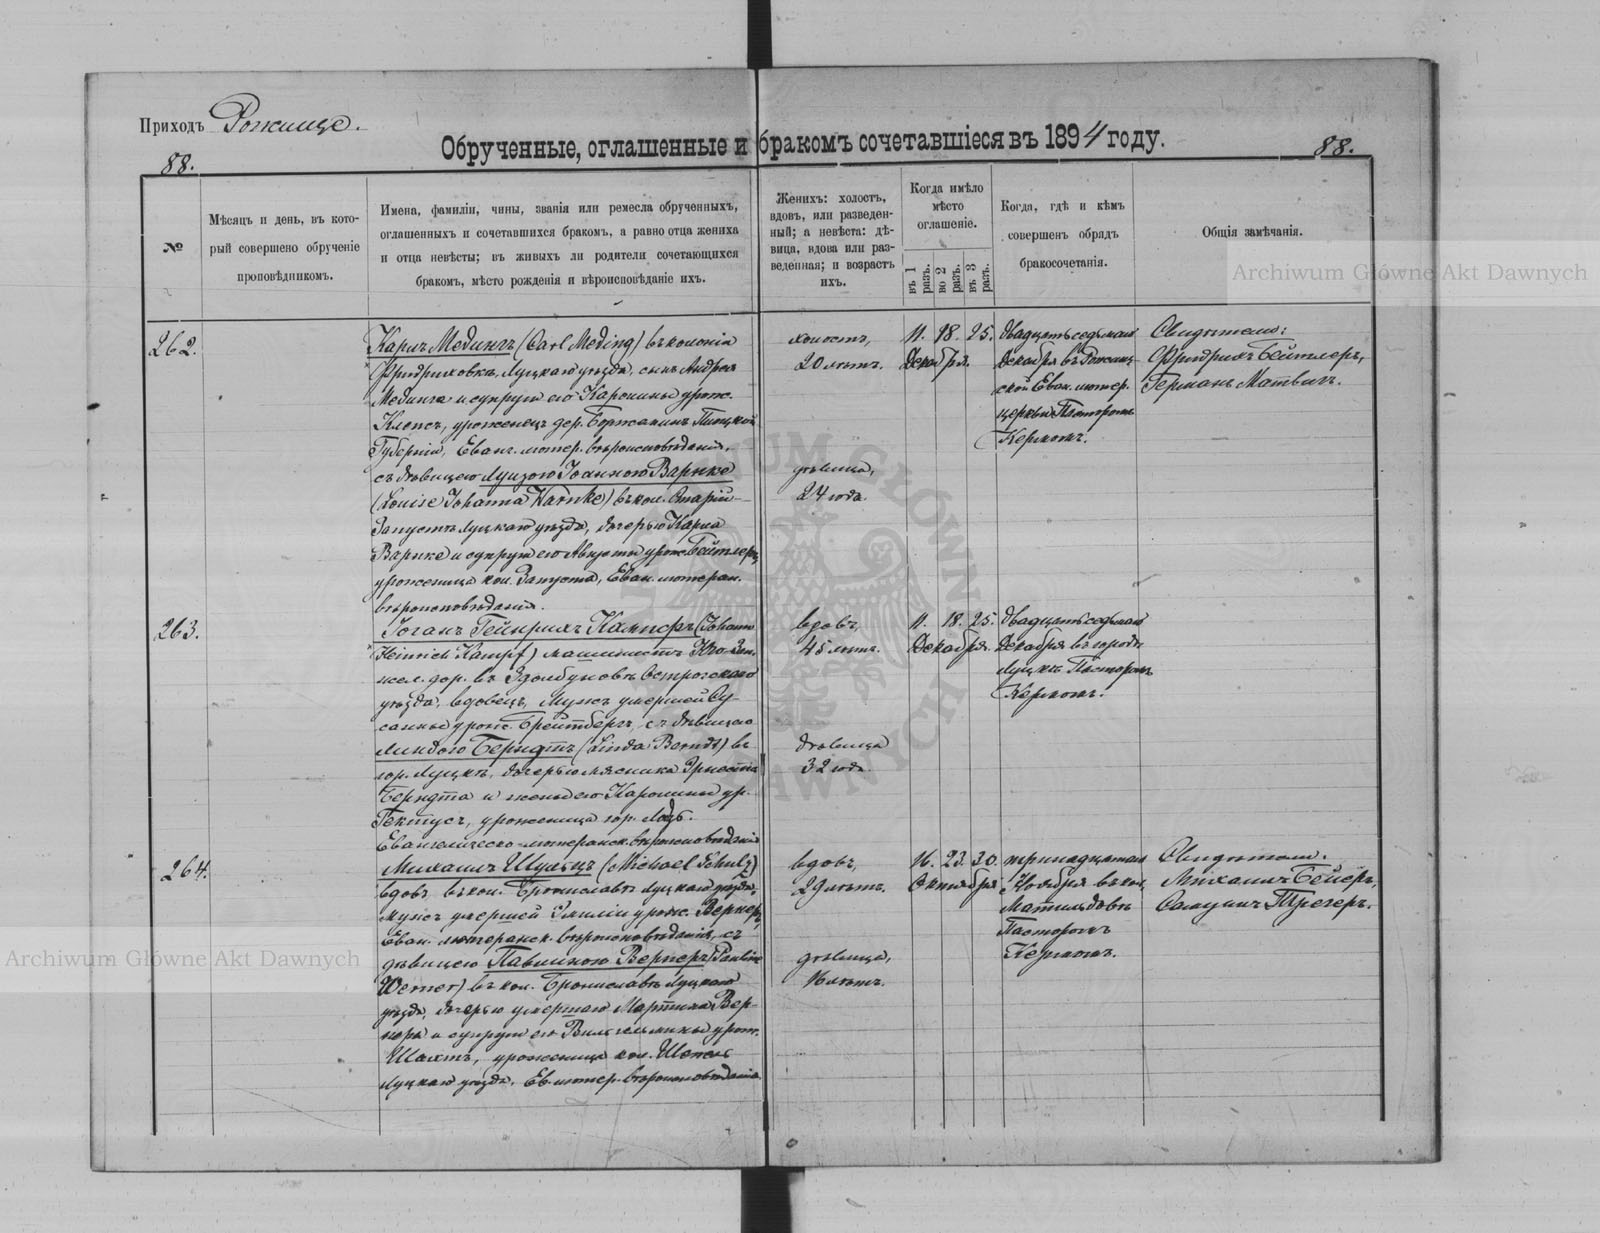 Приходъ Рожище.
Обрученные, оглашенные и бракомъ сочетавшіеся въ 1894 году.
88.
88.
№
Мѣсяцъ и день, въ кото-
рый совершено обрученіе
проповѣдникомъ.
Имена, фамиліи, чины, званія или ремесла обрученныхъ,
оглашенныхъ и сочетавшихся бракомъ, а равно отца жениха
и отца невѣсты; въ живыхъ ли родители сочетающихся
бракомъ, мѣсто рожденія и вѣроисповѣданіе ихъ.
Женихъ: холостъ,
вдовъ, или разведен-
ный; а невѣста: дѣ-
вица, вдова или раз-
веденная; и возрастъ
ихъ.
Когда имѣло
мѣсто
оглашеніе.
въ 1 разъ.
во 2 разъ.
въ 3 разъ.
Когда, гдѣ и кѣмъ
совершенъ обрядъ
бракосочетанія.
Общія замѣчанія.
Archiwum Główne Akt Dawnych
262.
Карлъ Медингъ (Carl Meding) въ колоніи
Фридриховкѣ, Луцкаго уѣзда, сынъ Андрея
Мединга и супруги его Каролины урож.
уроженецъ дер.
Губерніи, Еванг. лютер. вѣроисповѣданія,
съ дѣвицею Луизою Іоанною Варнке
(Louise Johanna Warnke) въ кол. Старый
Запустъ Луцкаго уѣзда, дочерью Карла
Варнке и супруги его Августы урож. Бейтлеръ,
уроженица кол. Запуста, Еван. лютеран.
вѣроисповѣданія.
холостъ,
20 лѣтъ.
дѣвица,
24 года.
11. 18. 25.
Декабря.
двадцать седьмаго
Декабря въ Рожищ-
ской Еван. лютер.
церкви Пасторомъ
Кермомъ.
Свидѣтели:
Фридрихъ Бейтлеръ,
Германъ Матвигъ.
263.
Іоганъ Гейнрихъ Кампфъ (Johann
Heinrich Kampf) машинистъ Юго-Зап.
жел. дор. въ Здолбуновѣ Острогскаго
уѣзда, вдовецъ, мужъ умершей Су-
санны урож. Брейтбергъ, съ дѣвицею
Линдою Берндтъ (Linda Berndt) въ
гор. Луцкѣ, дочерью мясника Эрнеста
Берндта и жены его Каролины ур.
уроженица гор. Лодзь.
Евангелическо-лютеранск. вѣроисповѣданія
вдовъ,
45 лѣтъ.
дѣвица
32 года.
11. 18. 25.
Декабря.
двадцать седьмаго
Декабря въ городѣ
Луцкѣ Пасторомъ
Кермомъ.
264.
Михаилъ Шульцъ (Michael Schulz)
вдовъ въ кол. Брониславкѣ Луцкаго уѣзда,
мужъ умершей Эмиліи урож. Вернеръ,
Еван. лютеранск. вѣроисповѣданія, съ
дѣвицею Павлиною Вернеръ (Pauline
Werner) въ кол. Брониславкѣ Луцкаго
уѣзда, дочерью умершаго Мартина Вер-
нера и супруги его Вильгельмины урож.
Шахтъ, уроженица кол.
Луцкаго уѣзда, Ев. лютер. вѣроисповѣданія.
вдовъ,
29 лѣтъ.
дѣвица,
16 лѣтъ.
16. 23. 30.
Октября
тринадцатаго
Ноября въ кол.
Матильдовъ
Пасторомъ
Кермомъ.
Свидѣтели:
Михаилъ Бейеръ,
Самуилъ Трегеръ.
Archiwum Główne Akt Dawnych